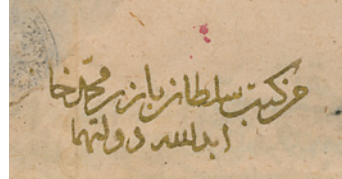 من كتب سلطان بايزيد بن محمد خان
ابد الله دولتهما